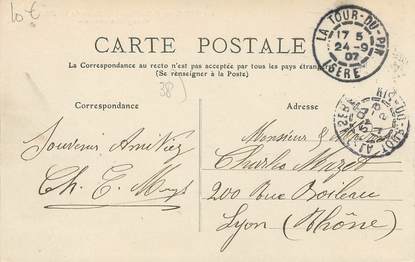 10€
CARTE POSTALE
La Correspondance au recto n'est pas acceptée par tous les pays étrangers
(Se renseigner à la Poste)
LA TOUR-DU-PIN
17 5
24-9
07
ISÈRE
38
Correspondance
Adresse
Souvenir Amitiés
Ch. E.
Monsieur &
Charles
200 Rue Boileau
Lyon (Rhône)